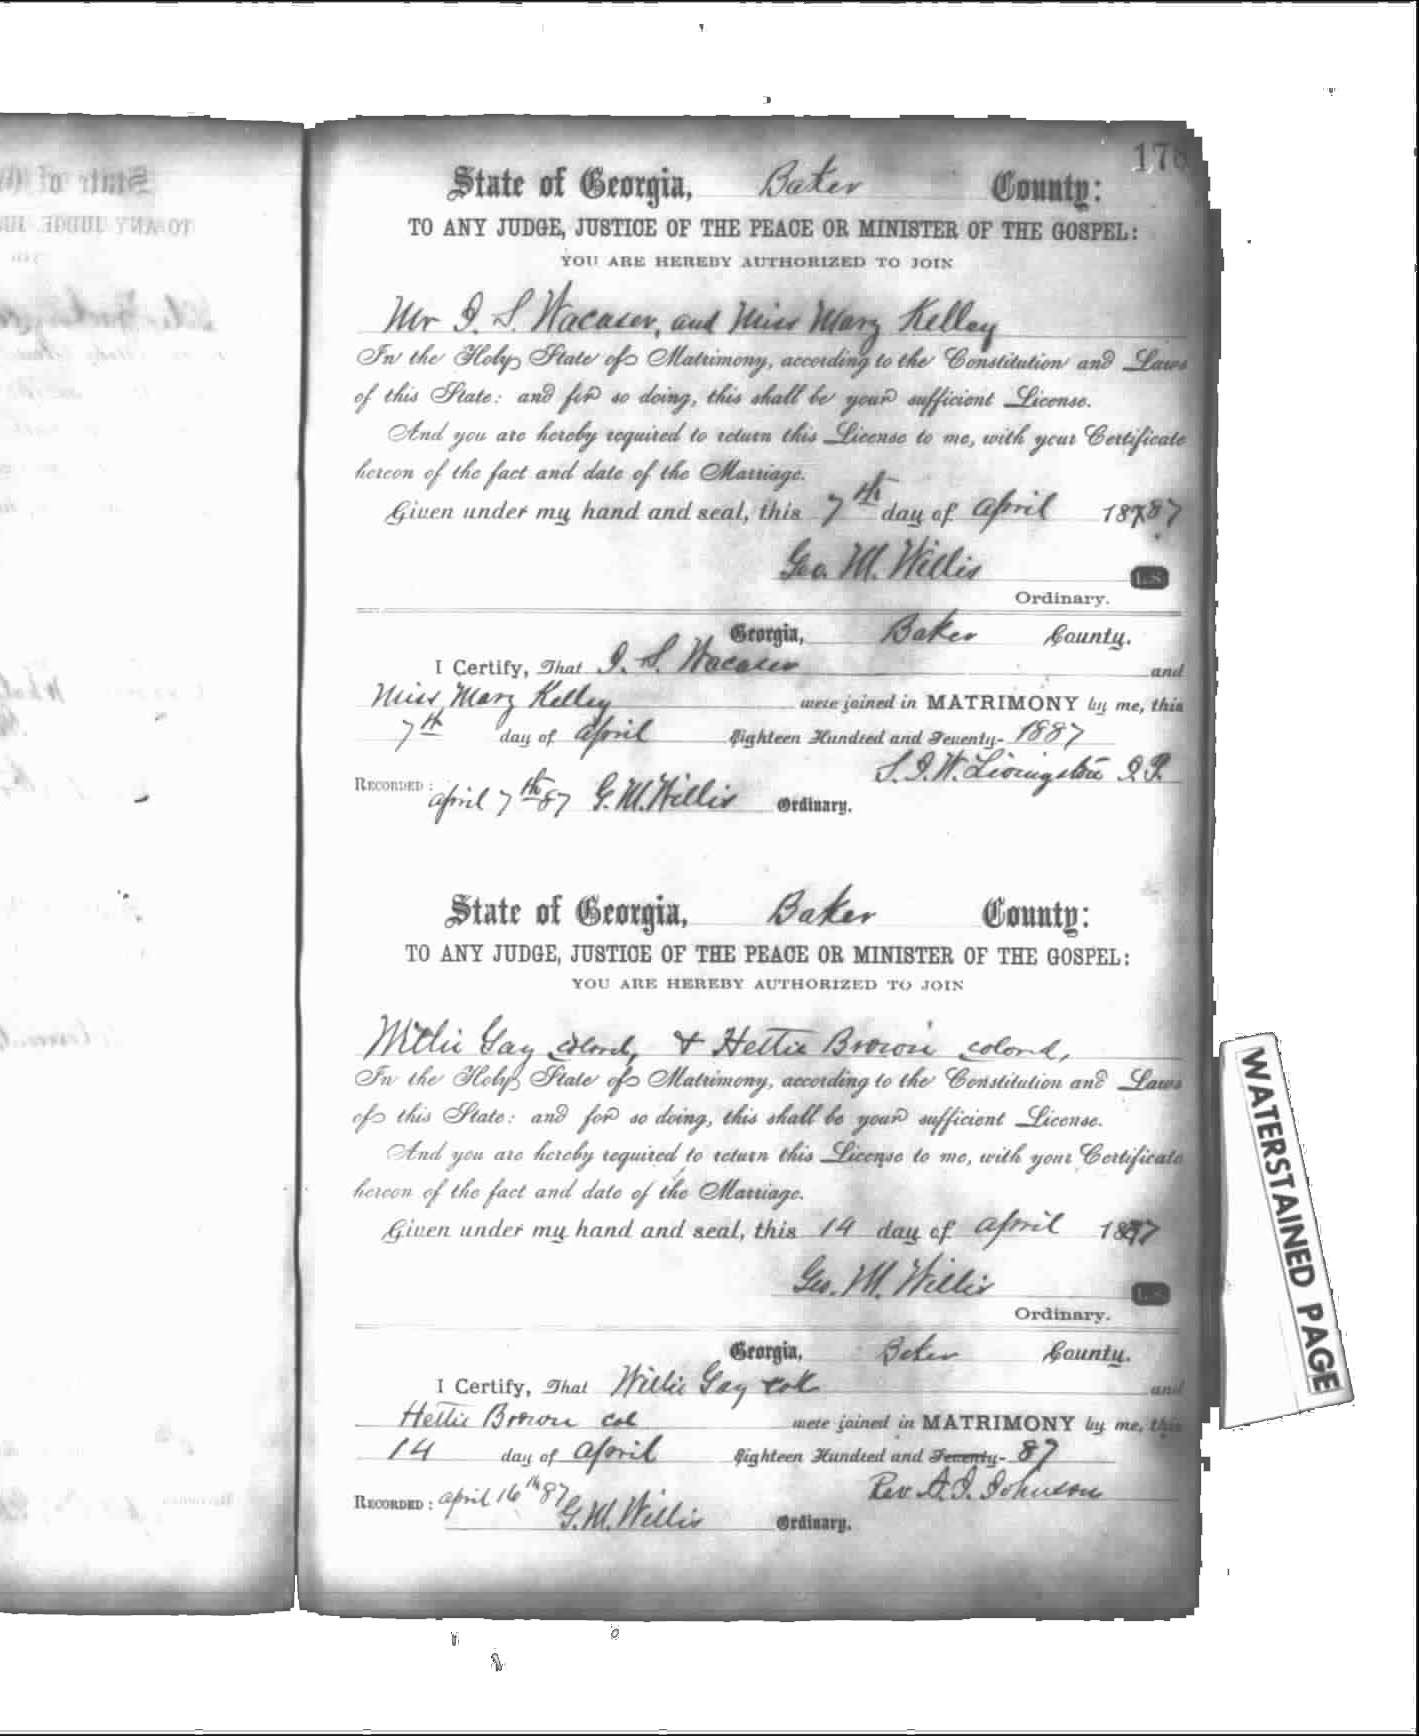 State of Georgia, Baker County:
TO ANY JUDGE, JUSTICE OF THE PEACE OR MINISTER OF THE GOSPEL:
YOU ARE HEREBY AUTHORIZED TO JOIN
Mr I. S. Wacaser, and Miss Mary Kelley
In the Holy State of Matrimony, according to the Constitution and Laws
of this State: and for so doing, this shall be your sufficient License.
And you are hereby required to return this License to me, with your Certificate
hereon of the fact and date of the Marriage.
Given under my hand and seal, this 7th day of April 1887
Geo. M. Willis L.S.
Ordinary.
Georgia, Baker County.
I Certify, That I. S. Wacaser and
Miss Mary Kelley were joined in MATRIMONY by me, this
7th day of April Eighteen Hundred and Seventy- 1887
S. I. W. Livingston J. P.
RECORDED: April 7th 87 G. M. Willis Ordinary.
State of Georgia, Baker County:
TO ANY JUDGE, JUSTICE OF THE PEACE OR MINISTER OF THE GOSPEL:
YOU ARE HEREBY AUTHORIZED TO JOIN
Willie Gay colord, & Hettie Brown colord,
In the Holy State of Matrimony, according to the Constitution and Laws
of this State: and for so doing, this shall be your sufficient License.
And you are hereby required to return this License to me, with your Certificate
hereon of the fact and date of the Marriage.
Given under my hand and seal, this 14 day of April 1887
Geo. M. Willis L.S.
Ordinary.
Georgia, Baker County.
I Certify, That Willie Gay col and
Hettie Brown col were joined in MATRIMONY by me, this
14 day of April Eighteen Hundred and Seventy- 87
Rev A. J. Johnson
RECORDED: April 16th 87 G. M. Willis Ordinary.
WATERSTAINED PAGE